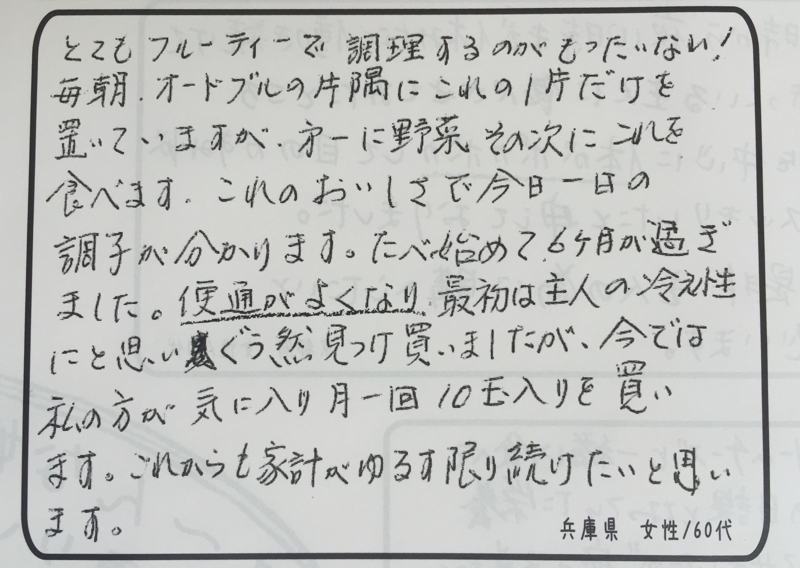 とてもフルーティーで調理するのがもったいない!
毎朝.オードブルの片隅にこれの1片だけを
置いていますが、才一に野菜、その次にこれを
食べます。これのおいしさで今日一日の
調子が分かります。たべ始めて、6ヶ月が過ぎ
ました。便通がよくなり、最初は主人の冷え性
にと思いぐう然見つけ買いましたが、今では
私の方が気に入り月一回10玉入りを買い
ます。これからも家計がゆるす限り続けたいと思い
ます。
兵庫県 女性/60代